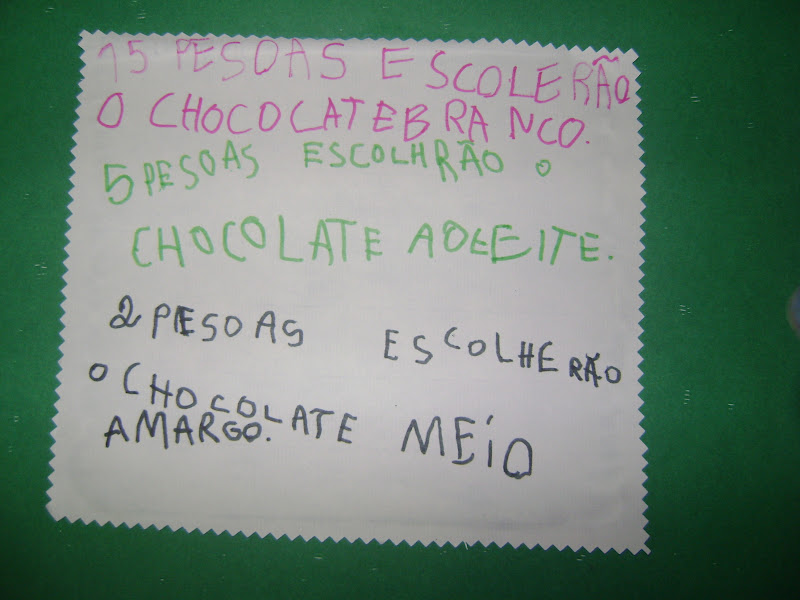 15 PESOAS ESCOLERÃO
O CHOCOLATEBRANCO.
5 PESOAS ESCOLHRÃO O
CHOCOLATE AOLEITE.
2 PESOAS ESCOLHERÃO
O CHOCOLATE MEÍO
AMARGO.